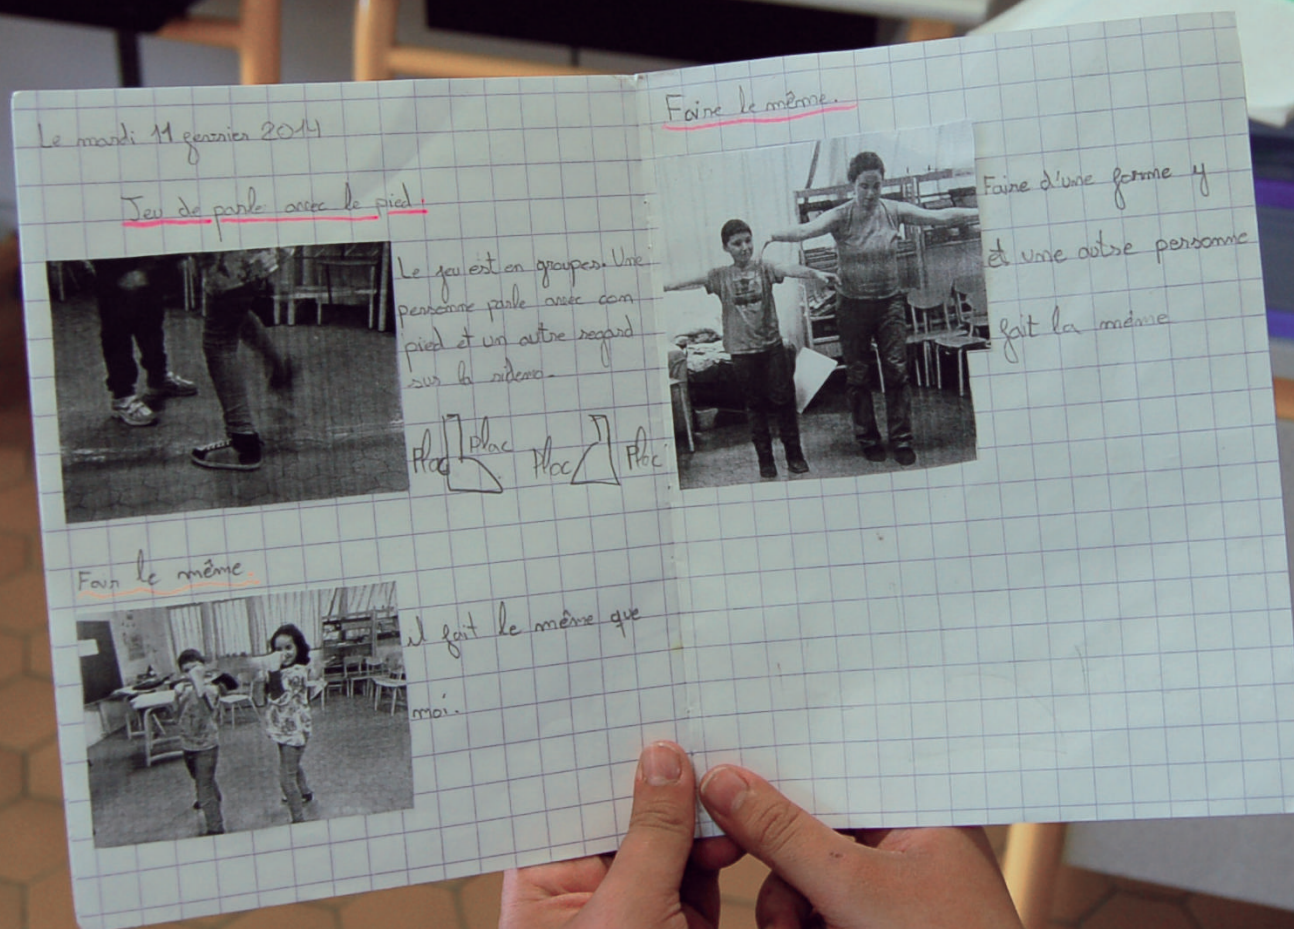 Le mardi 11 fevrier 2014
Jeu de parle avec le pied.
Le jeu est en groupes. Une
personne parle avec con
pied et un autre regard
sur la rideau.
Plac Plac Ploc Ploc
Fair le même
il fait le même que
moi.
Faire le même.
Faire d'une forme y
et une autre personne
fait la même